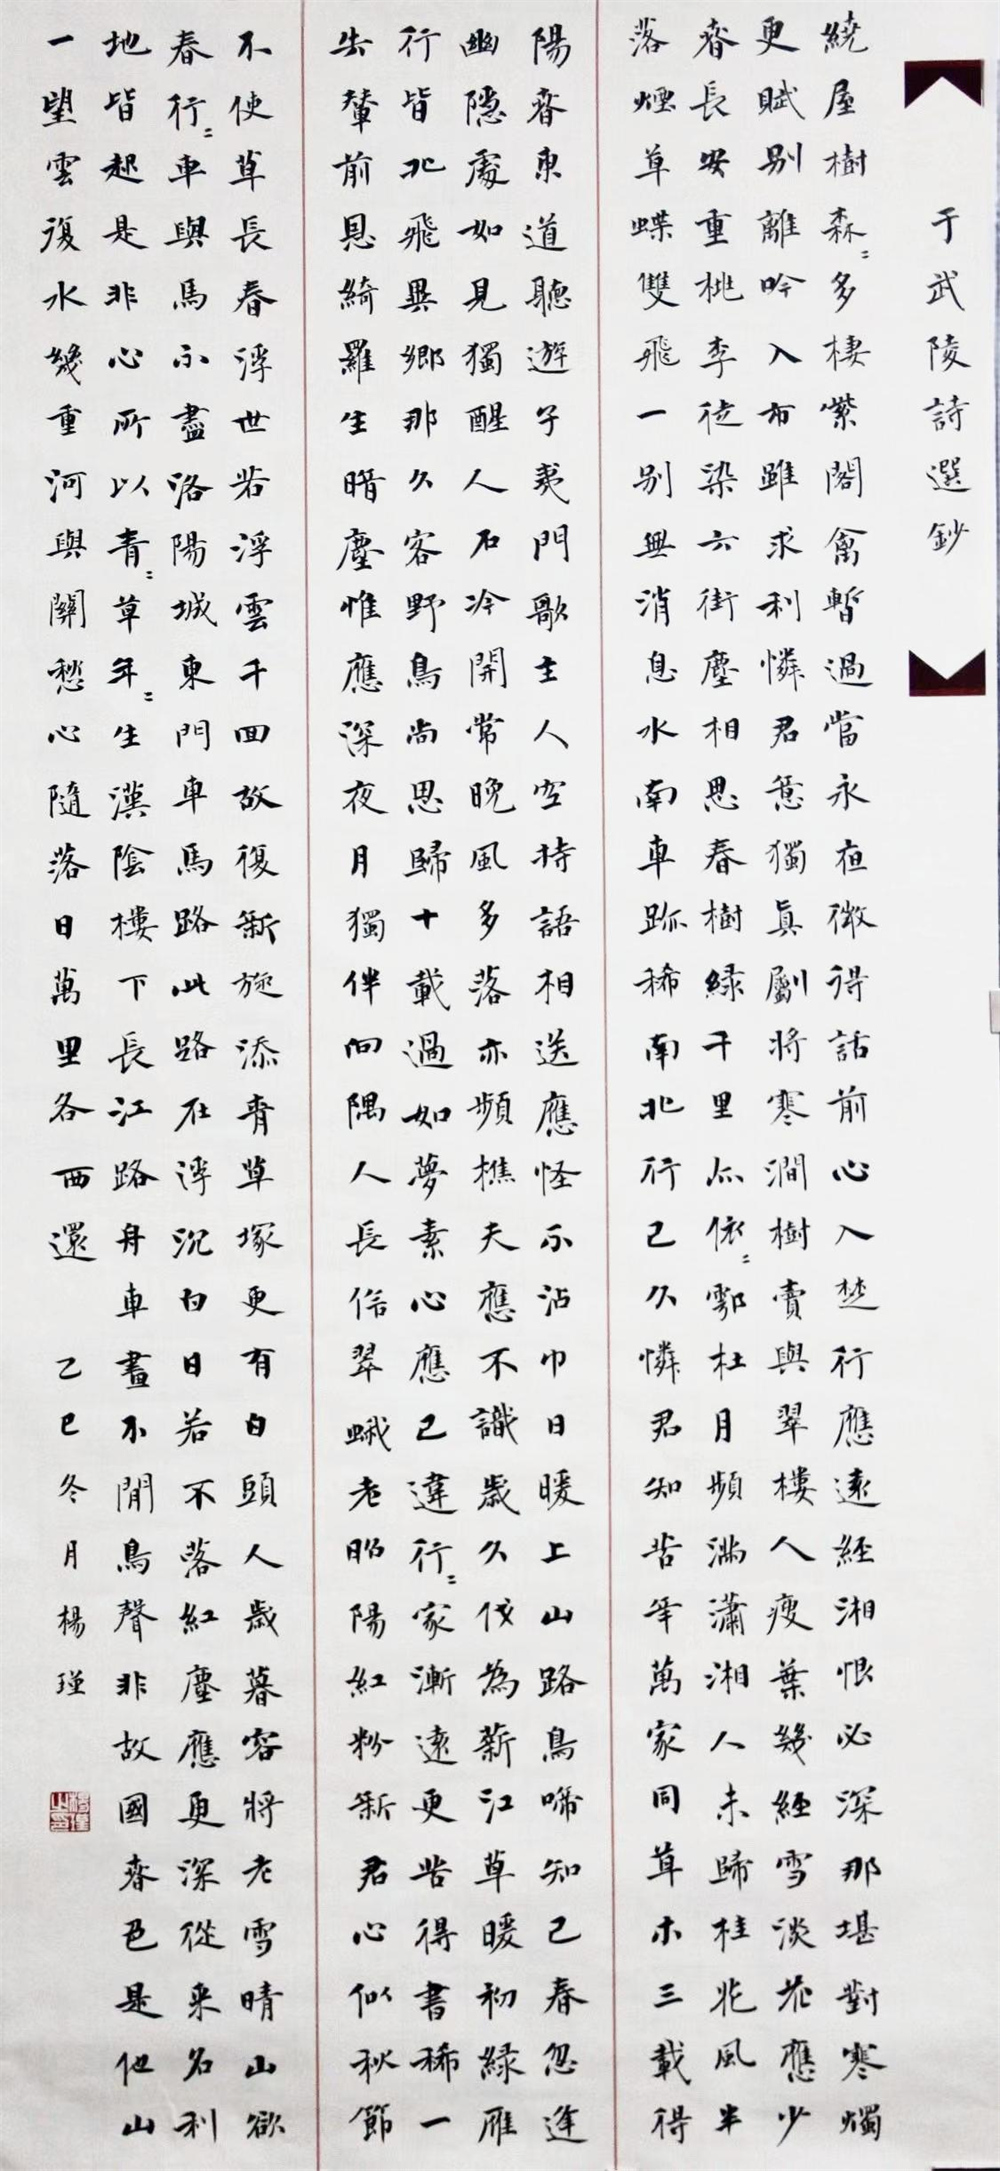 于武陵詩選鈔
繞屋樹森〻多棲紫閣禽暫過當永夜微得話前心入楚行應遠經湘恨必深那堪對寒燭
更賦别離吟入市雖求利憐君意獨真劚將寒澗樹賣與翠樓人瘦葉幾經雪淡花應少
春長安重桃李徒染六街塵相思春樹緑千里亦依〻鄠杜月頻滿瀟湘人未歸桂花風半
落煙草蝶雙飛一别無消息水南車跡稀南北行已久憐君知苦辛萬家同草木三載得
陽春東道聽遊子夷門歌主人空持語相送應怪不沾巾日暖上山路鳥啼知已春忽逢
幽隱處如見獨醒人石冷開常晚風多落亦頻樵夫應不識歲久伐為薪江草暖初緑雁
行皆北飛異鄉那久客野鳥尚思歸十載過如夢素心應已違行〻家漸遠更苦得書稀一
出輦前恩綺羅生暗塵惟應深夜月獨伴向隅人長信翠蛾老昭陽紅粉新君心似秋節
不使草長春浮世若浮雲千回故復新旋添青草塚更有白頭人歲暮客將老雪晴山欲
春行〻車與馬不盡洛陽城東門車馬路此路在浮沉白日若不落紅塵應更深從來名利
地皆起是非心所以青〻草年〻生漢陰樓下長江路舟車晝不閒鳥聲非故國春色是他山
一望雲復水幾重河與關愁心隨落日萬里各西還 乙巳冬月楊瑾
楊瑾之印